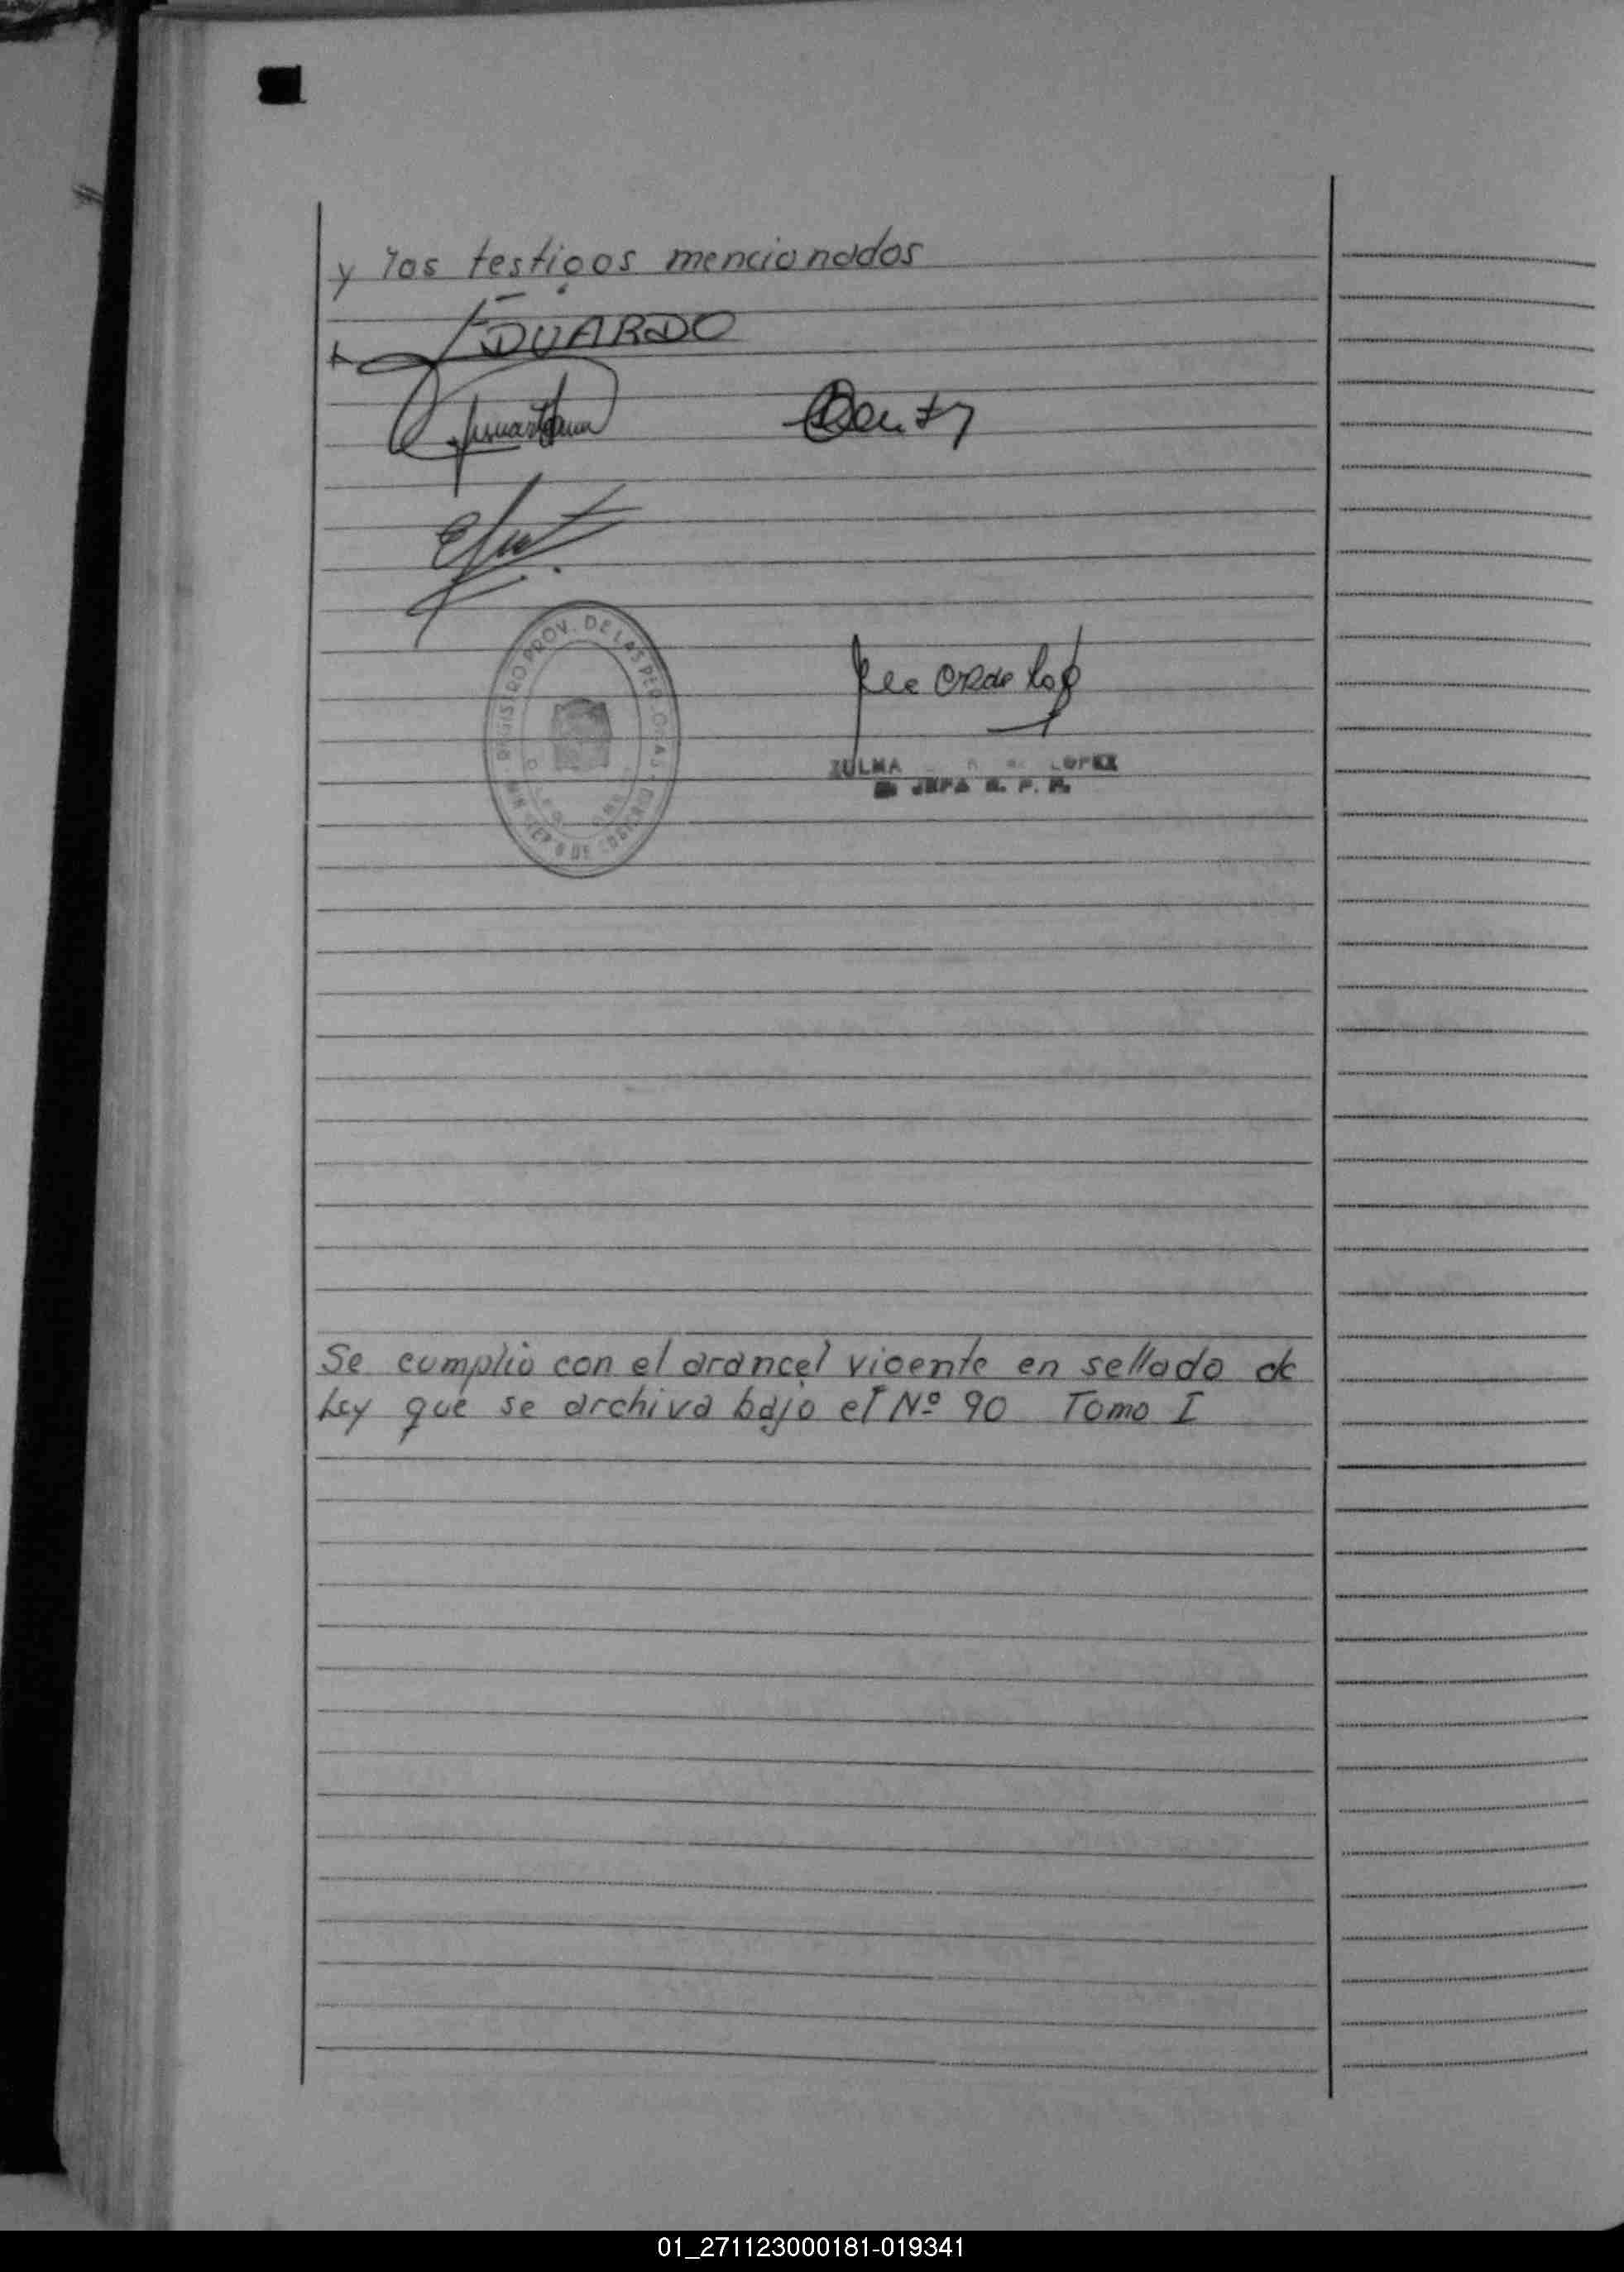 y los testigos mencionados
EDUARDO
REGISTRO PROV. DE LAS PER
ZULMA LOPEZ
JEFA R. P. P.
Se cumplió con el arancel vigente en sellado de
Ley que se archiva bajo el Nº 90 Tomo I
01_271123000181-019341